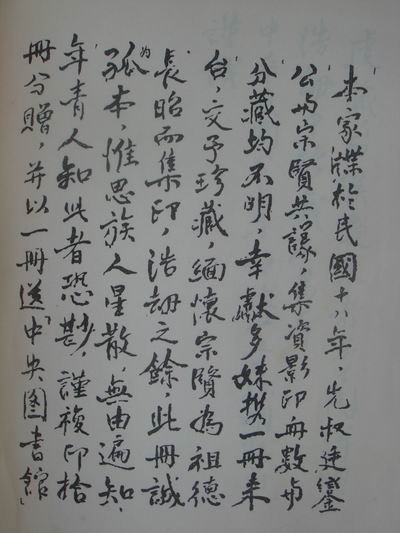 本家牒於民國十八年，先叔廷鑾
公与宗賢共議，集資影印冊數与
分藏均不明，幸献多妹携一冊来
台，交予珍藏，緬懷宗賢為祖德
長昭而集印，浩劫之餘，此冊誠
為孤本，惟思族人星散，無由遍知，
年青人知此者恐尠，謹複印拾
冊分贈，并以一冊送「中央图書館」